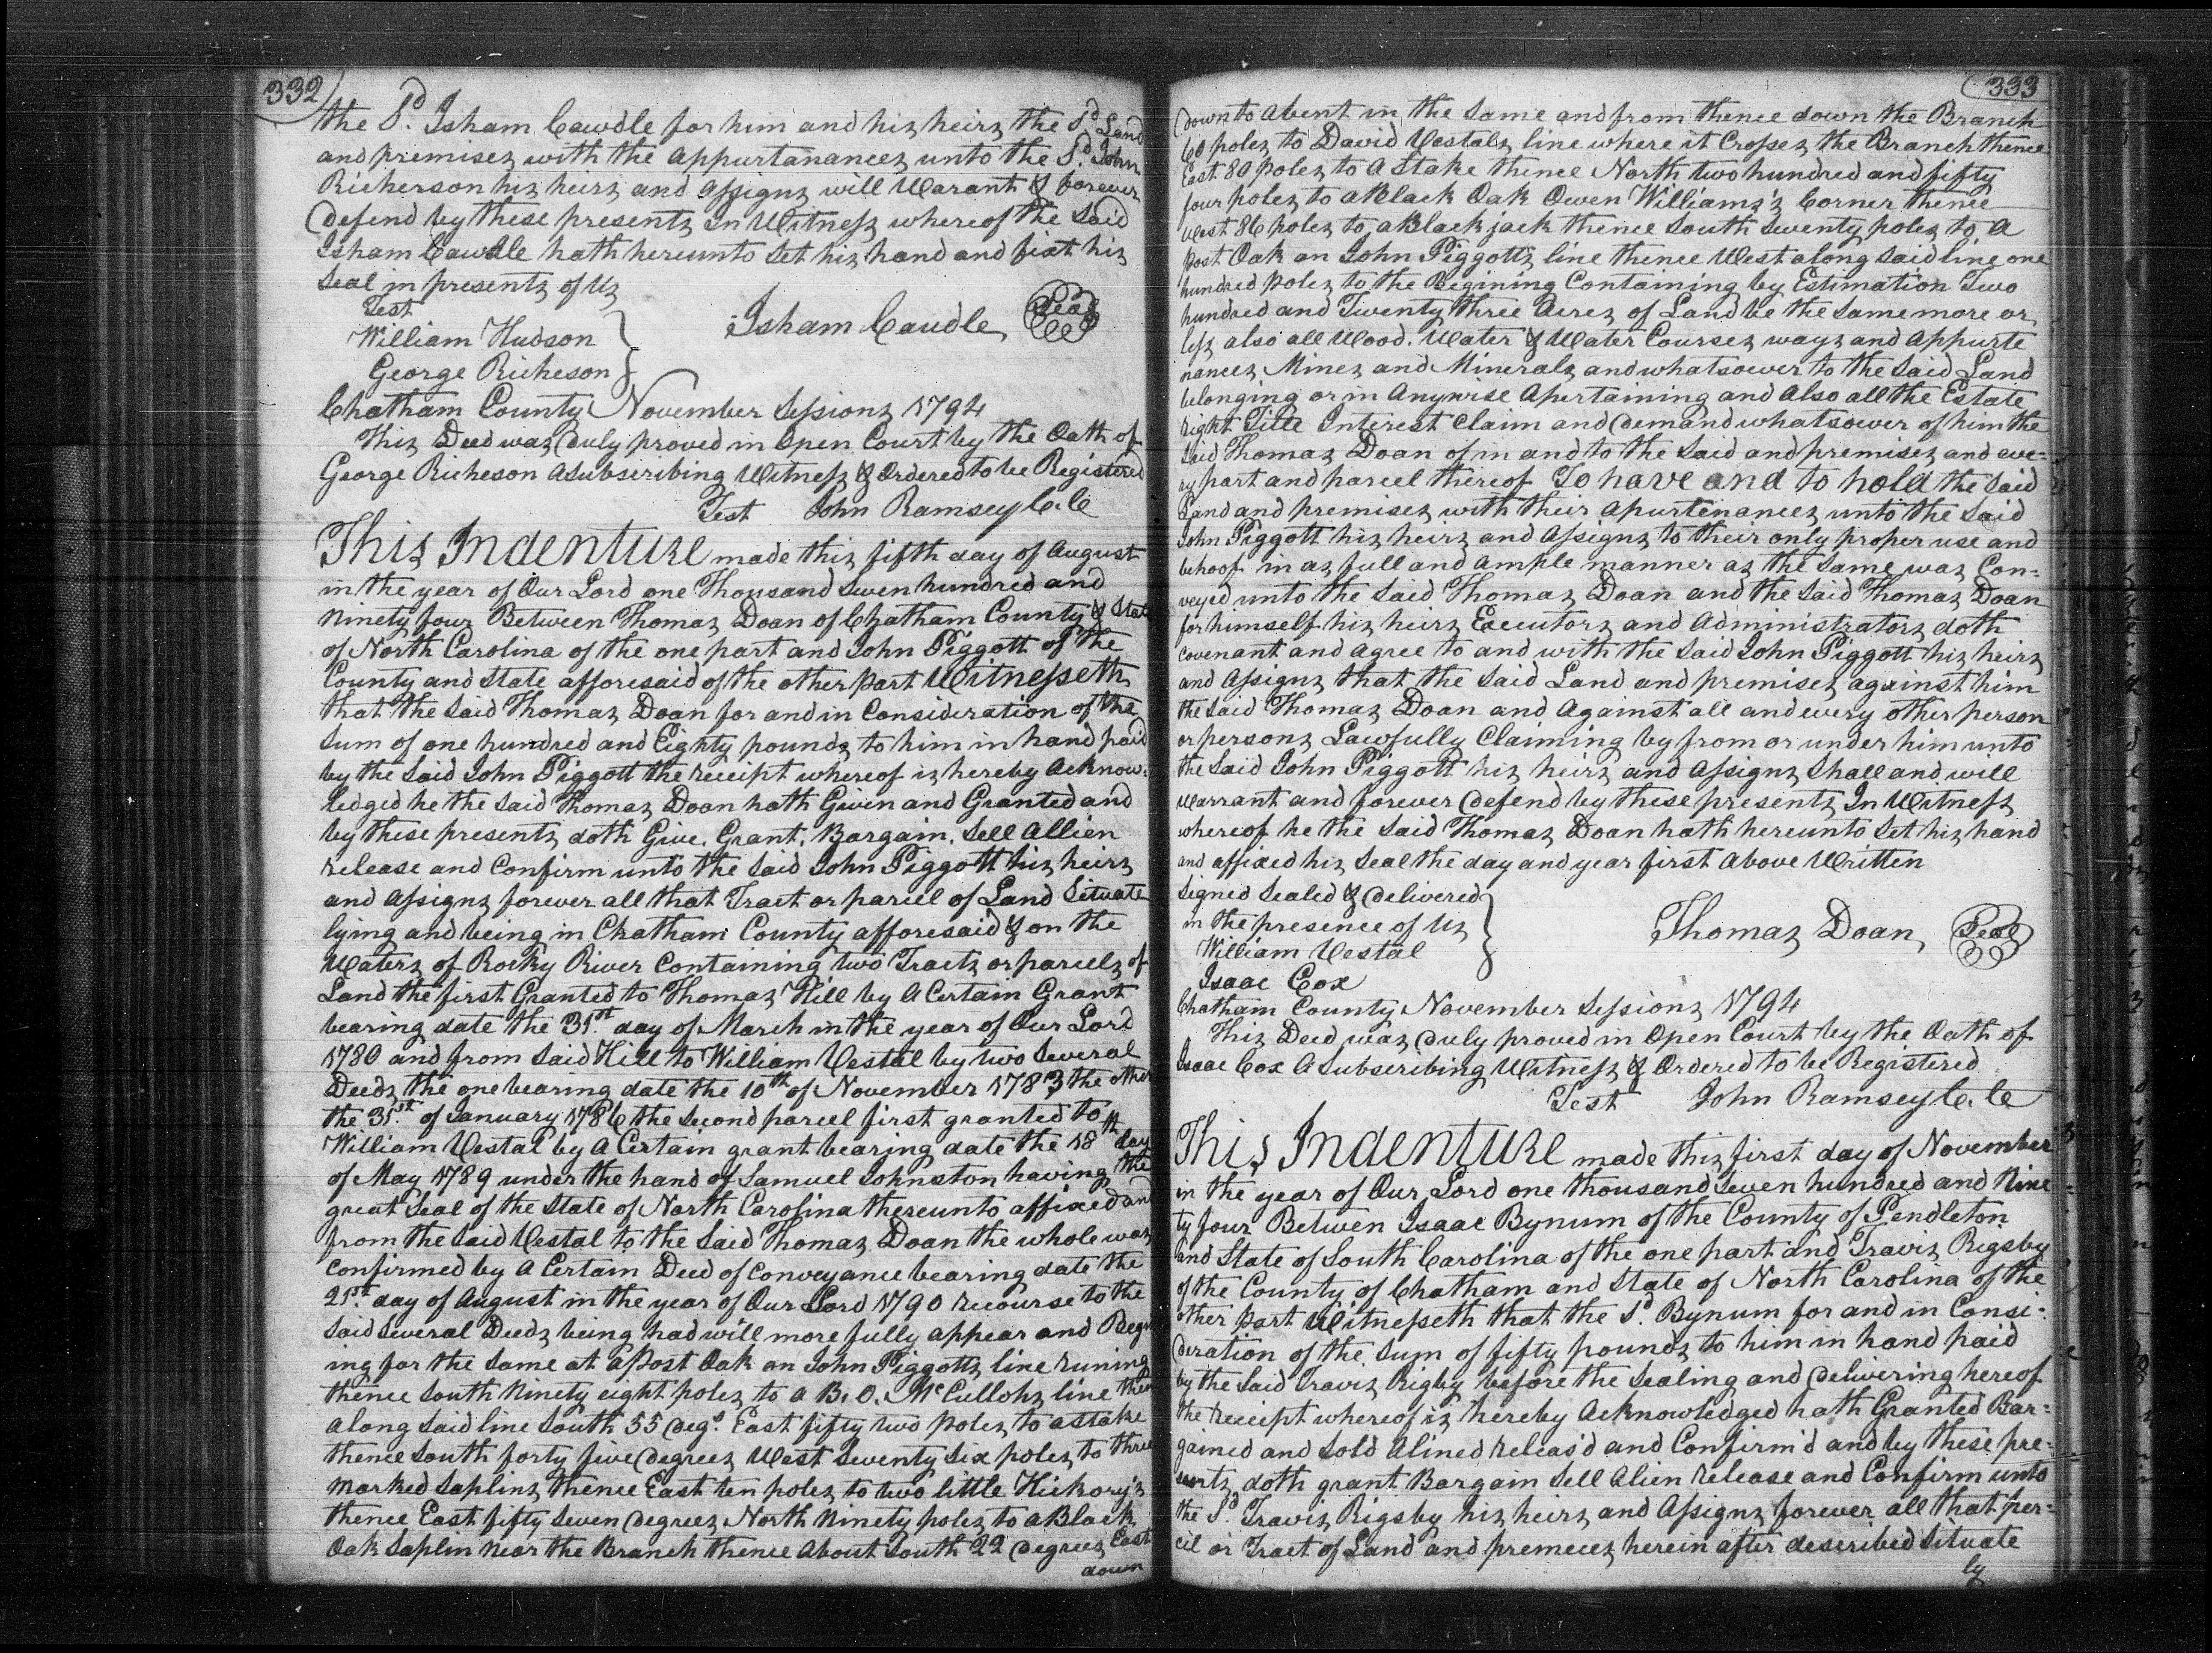 332
the Sd. Isham Cawdle for him and his heirs the Sd Land
and premises with the appurtanances unto the Sd. John
Richerson his heirs and assigns will Warant & forever
defend by these presents In Witness whereof the Said
Isham Cawdle hath hereunto Set his hand and fixt his
Seal in presents of Us
Test
William Hudson
Isham Caudle Seal
George Richeson
Chatham County November Sessions 1794
This Deed was duly proved in Open Court by the Oath of
George Richeson a Subscribing Witness & Ordered to be Registered
Test John Ramsey C.C
This Indenture made this fifth day of August
in the year of Our Lord one Thousand Seven hundred and
Ninety four Between Thomas Doan of Chatham County & State
of North Carolina of the one part and John Piggott of the
County and State afforesaid of the other part Witnesseth
that the Said Thomas Doan for and in Consideration of the
Sum of one hundred and Eighty pounds to him in hand paid
by the Said John Piggott the receipt whereof is hereby Acknow-
ledged he the Said Thomas Doan hath Given and Granted and
by these presents doth Give, Grant, Bargain, Sell Allien
release and Confirm unto the Said John Piggott his heirs
and assigns forever all that Tract or parcel of Land Situate
lying and being in Chatham County afforesaid & on the
Waters of Rocky River Containing two Tracts or parcels of
Land the first Granted to Thomas Hill by a Certain Grant
bearing date the 31st. day of March in the year of Our Lord
1780 and from Said Hill to William Vestal by two Several
Deeds the one bearing date the 10th of November 1783 the other
the 31st. of January 1786 the Second parcel first granted to
William Vestal by a Certain grant bearing date the 18th day
of May 1789 under the hand of Samuel Johnston having the
great Seal of the State of North Carolina thereunto affixed and
from the Said Vestal to the Said Thomas Doan the whole was
Confirmed by a Certain Deed of Conveyance bearing date the
21st. day of August in the year of Our Lord 1790 recourse to the
Said Several Deeds being had will more fully appear and Begin
ing for the Same at a Post Oak on John Piggotts line runing
thence South Ninety eight poles to a B.O. McCullohs line then
along Said line South 55 degs. East fifty two poles to a Stake
thence South forty five degrees West Seventy Six poles to three
Marked Saplins thence East ten poles to two little Hickory's
thence East fifty Seven degrees North Ninety poles to a Black
Oak Saplin Near the Branch thence about South 22 degrees East
down
333
down to a bent in the Same and from thence down the Branch
60 poles to David Vestals line where it Crosses the Branch thence
East 80 poles to a Stake thence North two hundred and fifty
four poles to a Black Oak Owen Williams's Corner thence
West 86 poles to a Black jack thence South Seventy poles to a
post Oak on John Piggotts line thence West along Said line one
hundred poles to the Begining Containing by Estimation Two
hundred and Twenty three Acres of Land be the Same more or
less also all Wood, Water & Water Courses ways and appurte
nances Mines and Minerals and whatsoever to the Said Land
belonging or in Anywise Apertaining and also all the Estate
right Title Interest Claim and demand whatsoever of him the
Said Thomas Doan of in and to the Said and premises and eve-
ry part and parcel thereof To have and to hold the Said
Land and premises with their apurtenances unto the Said
John Piggott his heirs and assigns to their only proper use and
behoof in as full and ample manner as the Same was Con-
veyed unto the Said Thomas Doan and the Said Thomas Doan
for himself his heirs Executors and Administrators doth
Covenant and agree to and with the Said John Piggott his heirs
and assigns that the Said Land and premises against him
the Said Thomas Doan and against all and every other person
or persons Lawfully Claiming by from or under him unto
the Said John Piggott his heirs and assigns Shall and will
Warrant and forever defend by these presents In Witness
whereof he the Said Thomas Doan hath hereunto Set his hand
and affixed his Seal the day and year first above Written
Signed Sealed & delivered
in the presence of Us
Thomas Doan Seal
William Vestal
Isaac Cox
Chatham County November Sessions 1794
This Deed was duly proved in Open Court by the Oath of
Isaac Cox a Subscribing Witness & Ordered to be Registered
Test John Ramsey C.C
This Indenture made this first day of November
in the year of Our Lord one thousand Seven hundred and Nine
ty four Betwen Isaac Bynum of the County of Pendleton
and State of South Carolina of the one part and Travis Rigsby
of the County of Chatham and State of North Carolina of the
other part Witnesseth that the Sd. Bynum for and in Consi-
deration of the Sum of fifty pounds to him in hand paid
by the Said Travis Rigby before the Sealing and delivering hereof
the receipt whereof is hereby Acknowledged hath Granted Bar-
gained and Sold Alined releas'd and Confirm'd and by these pre-
sents doth grant Bargain Sell Alien release and Confirm unto
the Sd. Travis Rigsby his heirs and Assigns forever all that per-
cil or Tract of Land and premeces herein after described Situate
ly